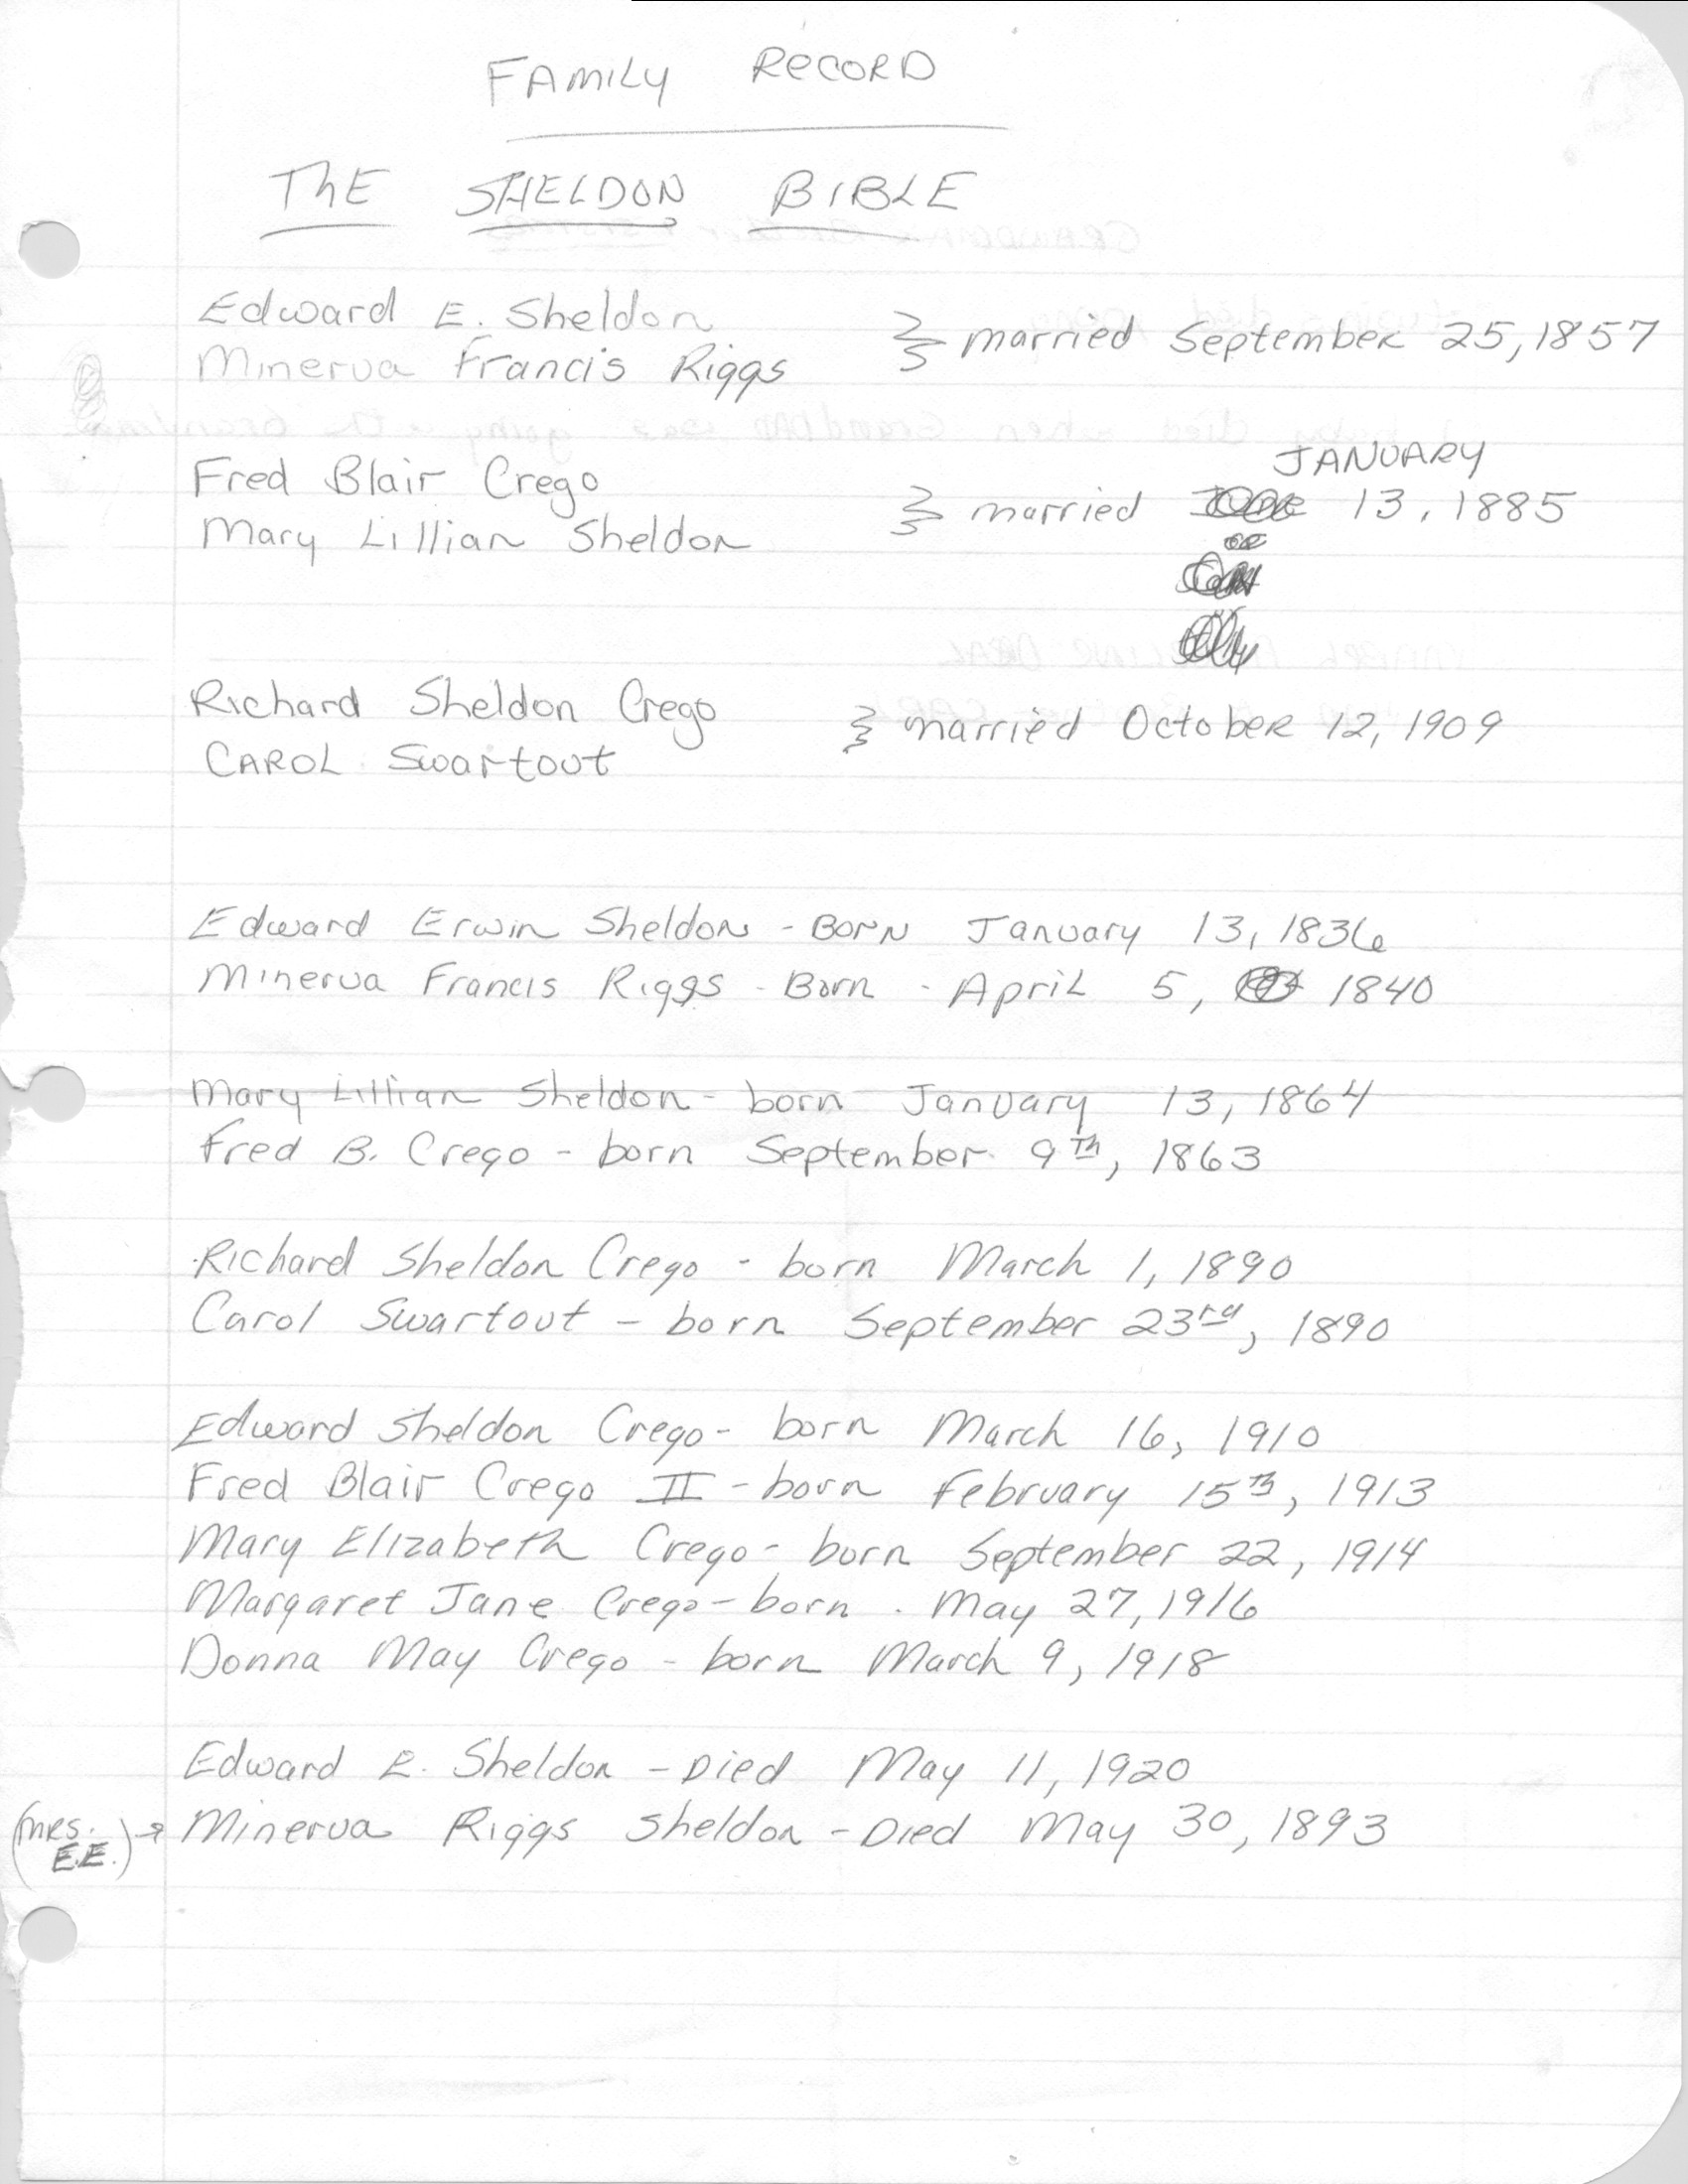 FAMILY RECORD
THE SHELDON BIBLE
Edward E. Sheldon
Minerva Francis Riggs } married September 25, 1857
JANUARY
Fred Blair Crego
Mary Lillian Sheldon } married 13, 1885
or
Richard Sheldon Crego
CAROL Swartout } married October 12, 1909
Edward Erwin Sheldon - BORN January 13, 1836
Minerva Francis Riggs - Born - April 5, 1840
Mary Lillian Sheldon - born January 13, 1864
Fred B. Crego - born September 9th, 1863
Richard Sheldon Crego - born March 1, 1890
Carol Swartout - born September 23rd, 1890
Edward Sheldon Crego - born March 16, 1910
Fred Blair Crego II - born February 15th, 1913
Mary Elizabeth Crego - born September 22, 1914
Margaret Jane Crego - born May 27, 1916
Donna May Crego - born March 9, 1918
Edward E. Sheldon - Died May 11, 1920
(MRS. E.E.) → Minerva Riggs Sheldon - Died May 30, 1893